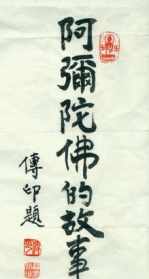 阿彌陀佛的故事
傳印題